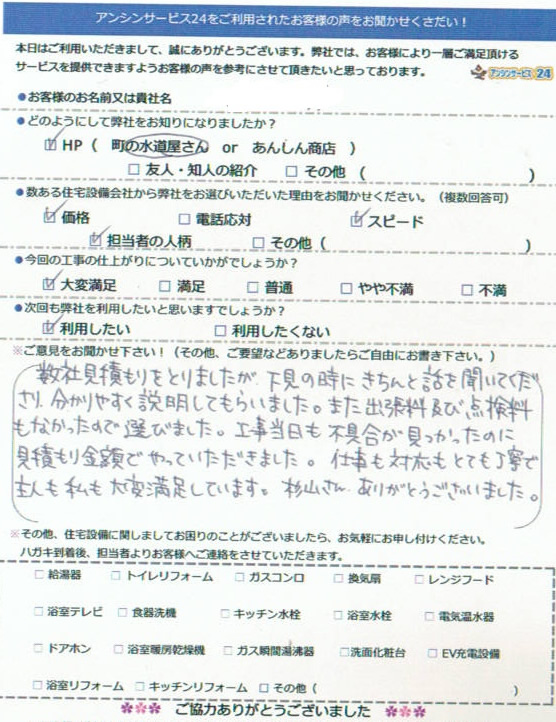 アンシンサービス24をご利用されたお客様の声をお聞かせください！
本日はご利用いただきまして、誠にありがとうございます。弊社では、お客様により一層ご満足頂ける
サービスを提供できますようお客様の声を参考にさせて頂きたいと思っております。
アンシンサービス24
●お客様のお名前又は貴社名
●どのようにして弊社をお知りになりましたか？
☑ HP（ 町の水道屋さん or あんしん商店 ）
□ 友人・知人の紹介 □ その他 （ ）
●数ある住宅設備会社から弊社をお選びいただいた理由をお聞かせください。（複数回答可）
☑ 価格 □ 電話応対 ☑ スピード
☑ 担当者の人柄 □ その他（ ）
●今回の工事の仕上がりについていかがでしょうか？
☑ 大変満足 □ 満足 □ 普通 □ やや不満 □ 不満
●次回も弊社を利用したいと思いますでしょうか？
☑ 利用したい □ 利用したくない
※ご意見をお聞かせ下さい！（その他、ご要望などありましたらご自由にお書き下さい。）
数社見積もりをとりましたが、下見の時にきちんと話を聞いてくだ
さり、分かりやすく説明してもらいました。また出張料及び点検料
もなかったので選びました。工事当日も不具合が見つかったのに
見積もり金額でやっていただきました。仕事も対応もとても丁寧で
主人も私も大変満足しています。杉山さん、ありがとうございました。
※その他、住宅設備に関しましてお困りのことがございましたら、お気軽にお申し付けください。
ハガキ到着後、担当者よりお客様へご連絡をさせていただきます。
□ 給湯器 □ トイレリフォーム □ ガスコンロ □ 換気扇 □ レンジフード
□ 浴室テレビ □ 食器洗機 □ キッチン水栓 □ 浴室水栓 □ 電気温水器
□ ドアホン □ 浴室暖房乾燥機 □ ガス瞬間湯沸器 □ 洗面化粧台 □ EV充電設備
□ 浴室リフォーム □ キッチンリフォーム □ その他（ ）
ご協力ありがとうございました